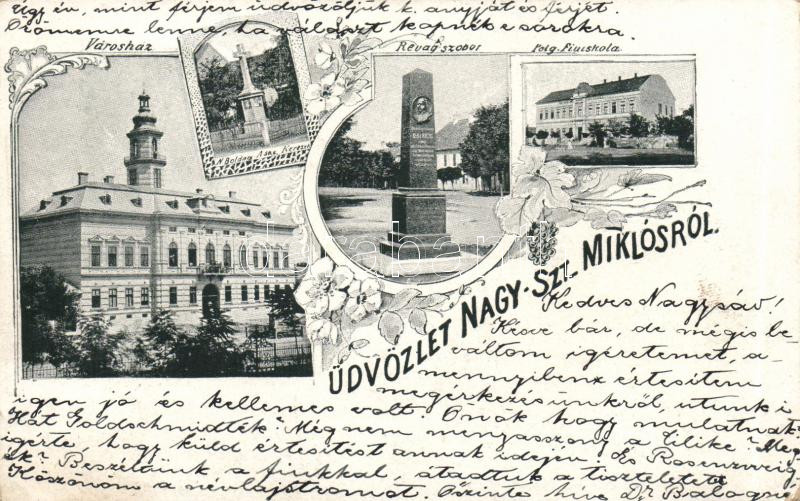 úgy én, mint férjem üdvözöljük k. anyját és férjét.
Örömemre lenne, ha választ kapnék e sorokra.
Városház
N. Boldog Assz. Kereszt
Révay szobor
Polg. Fiuiskola
darabanth
ÜDVÖZLET NAGY-SZT. MIKLÓSRÓL.
Kedves Nagysád!
Késve bár, de mégis be
váltom igéretemet, a-
mennyiben értesítem
megérkezésünkről, utunk i
igen jó és kellemes volt. Önök hogy mulatnak?
Hát Goldschmidték? Még nem menyasszony a Cilike? Meg
igérte, hogy küld értesítést annak idején. És Rosenzweig
ék? Beszéltünk a fiukkal, átadtuk a tiszteletet.
Köszönöm a névlajstromot. Őszinte híve Dr